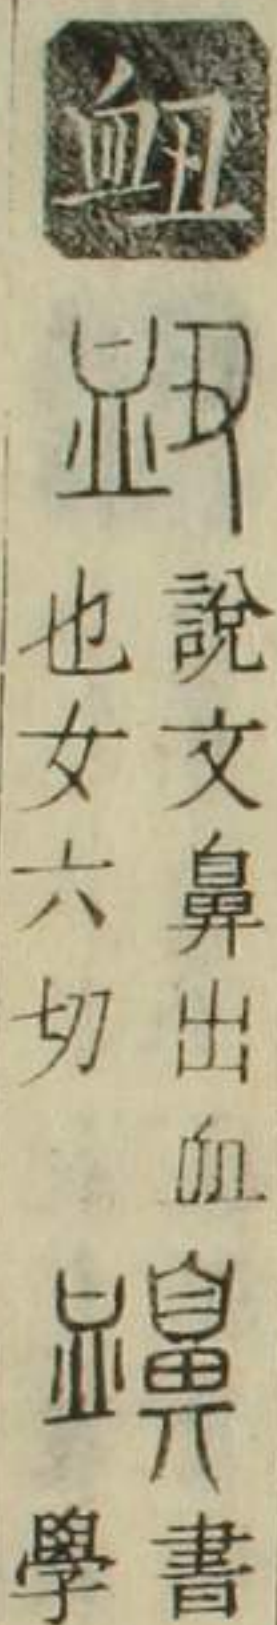 衂
說文鼻出血
也女六切
書
學